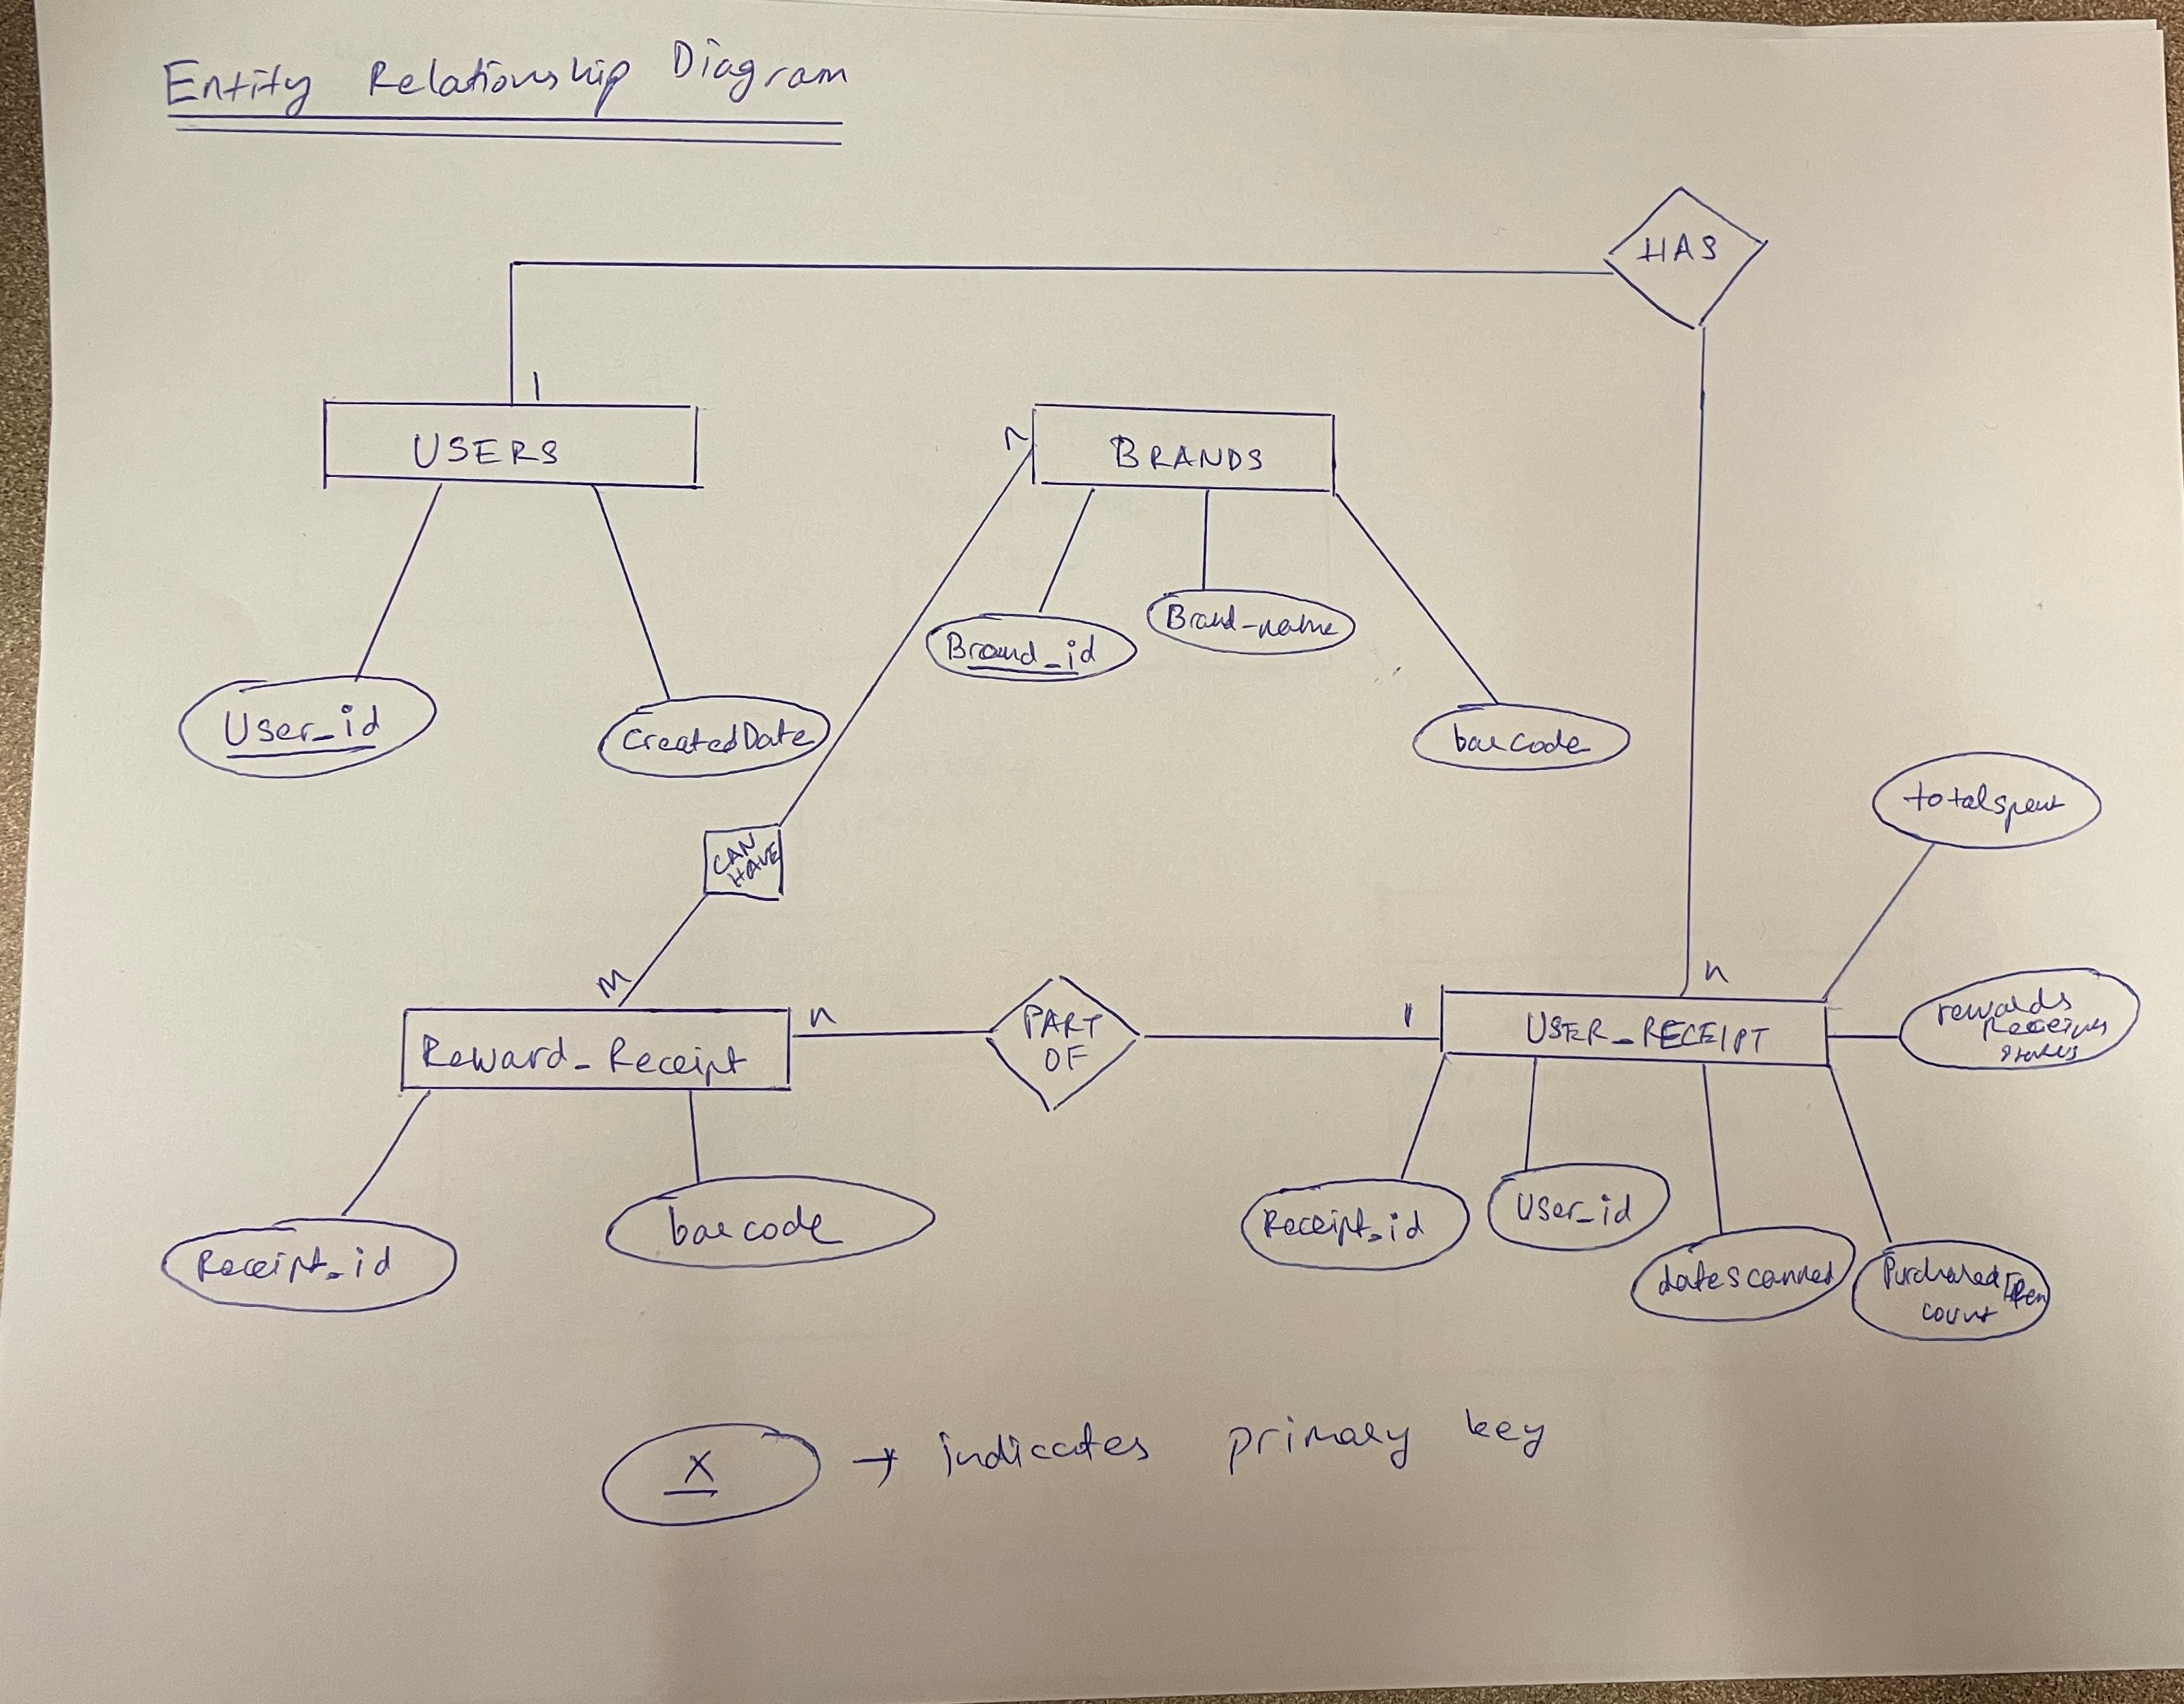 Entity Relationship Diagram
HAS
1
USERS
n
BRANDS
Brand_id
Brand-name
User_id
createdDate
barcode
totalspent
CAN
HAVE
M
n
1
n
Reward_Receipt
PART
OF
USER_RECEIPT
rewards
Receipts
status
Receipt_id
barcode
Receipt_id
User_id
datescanned
Purchased Item
count
X → indicates primary key